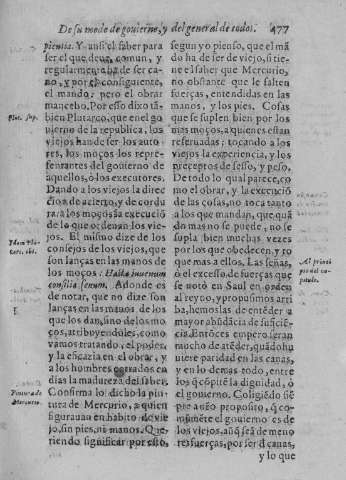 De su modo de gouierno, y del general de todos. 477
pientia. Y ansi el saber para
ser el que deue, comun, y
regularmente ha de ser ca-
no, y por el consiguiente,
el mando; pero el obrar
mancebo. Por esso dixo tã-
bien Plutarco, que en el go
uierno de la republica, los
viejos han de ser los auto-
res, los moços los repre-
sentantes del gouierno de
aquellos, ò los executores.
Dando a los viejos la direc
cion de acierto, y de cordu
ra: a los moços la execució
de lo que ordenan los vie-
jos. El mismo dize de los
consejos de los viejos, que
son lanças en las manos de
los moços: Hasta iuuenum
consilia senum. Adonde es
de notar, que no dize son
lanças en las manos de los
que los dan, sino de los mo-
ços, atribuyendoles, como
vamos tratando, el poder,
y la eficazia en el obrar, y
a los hombres entrados en
dias la madureza del saber.
Confirma lo dicho la pin-
tura de Mercurio, a quien
figurauan en habito de vie
jo, sin pies, ni manos. Que-
riendo significar por esto,
Plut. sup.
Idem Plu-
tarc. ibi.
E
Pintura de
Mercurio.
segun yo pienso, que el mã
do ha de ser de viejo, si tie-
ne el saber que Mercurio,
no obstante que le falten
fuerças, entendidas en las
manos, y los pies. Cosas
que se suplen bien por los
mas moços, a quienes estan
reseruadas; tocando a los
viejos la experiencia, y los
preceptos de sesso, y peso.
De todo lo qual parece, co
mo el obrar, y la execució
de las cosas, no toca tanto
a los que mandan, que, quã
do mas no se puede, no se
supla bien muchas vezes
por los que obedecen, y to
que mas a ellos. Las señas,
ò el excesso, de fuerças que
se notò en Saul en orden
al reyno, y propusimos arri
ba, hemos las de enteder a
mayor abũdãcia de suficiẽ-
cia. Entonces empero seran
mucho de atẽder, quãdo hu
uiere paridad en las canas,
y en lo demas todo, entre
los q̃ cõpitẽ la dignidad, ò
el gouierno. Coligiẽdo siẽ
pre a nuestro proposito, q̃ co-
munmẽte el gouierno es de
los viejos, aũq̃ seã de meno
res fuerças, por ser d̃ canas,
y lo que
Al princi
pio del ca-
pitulo.